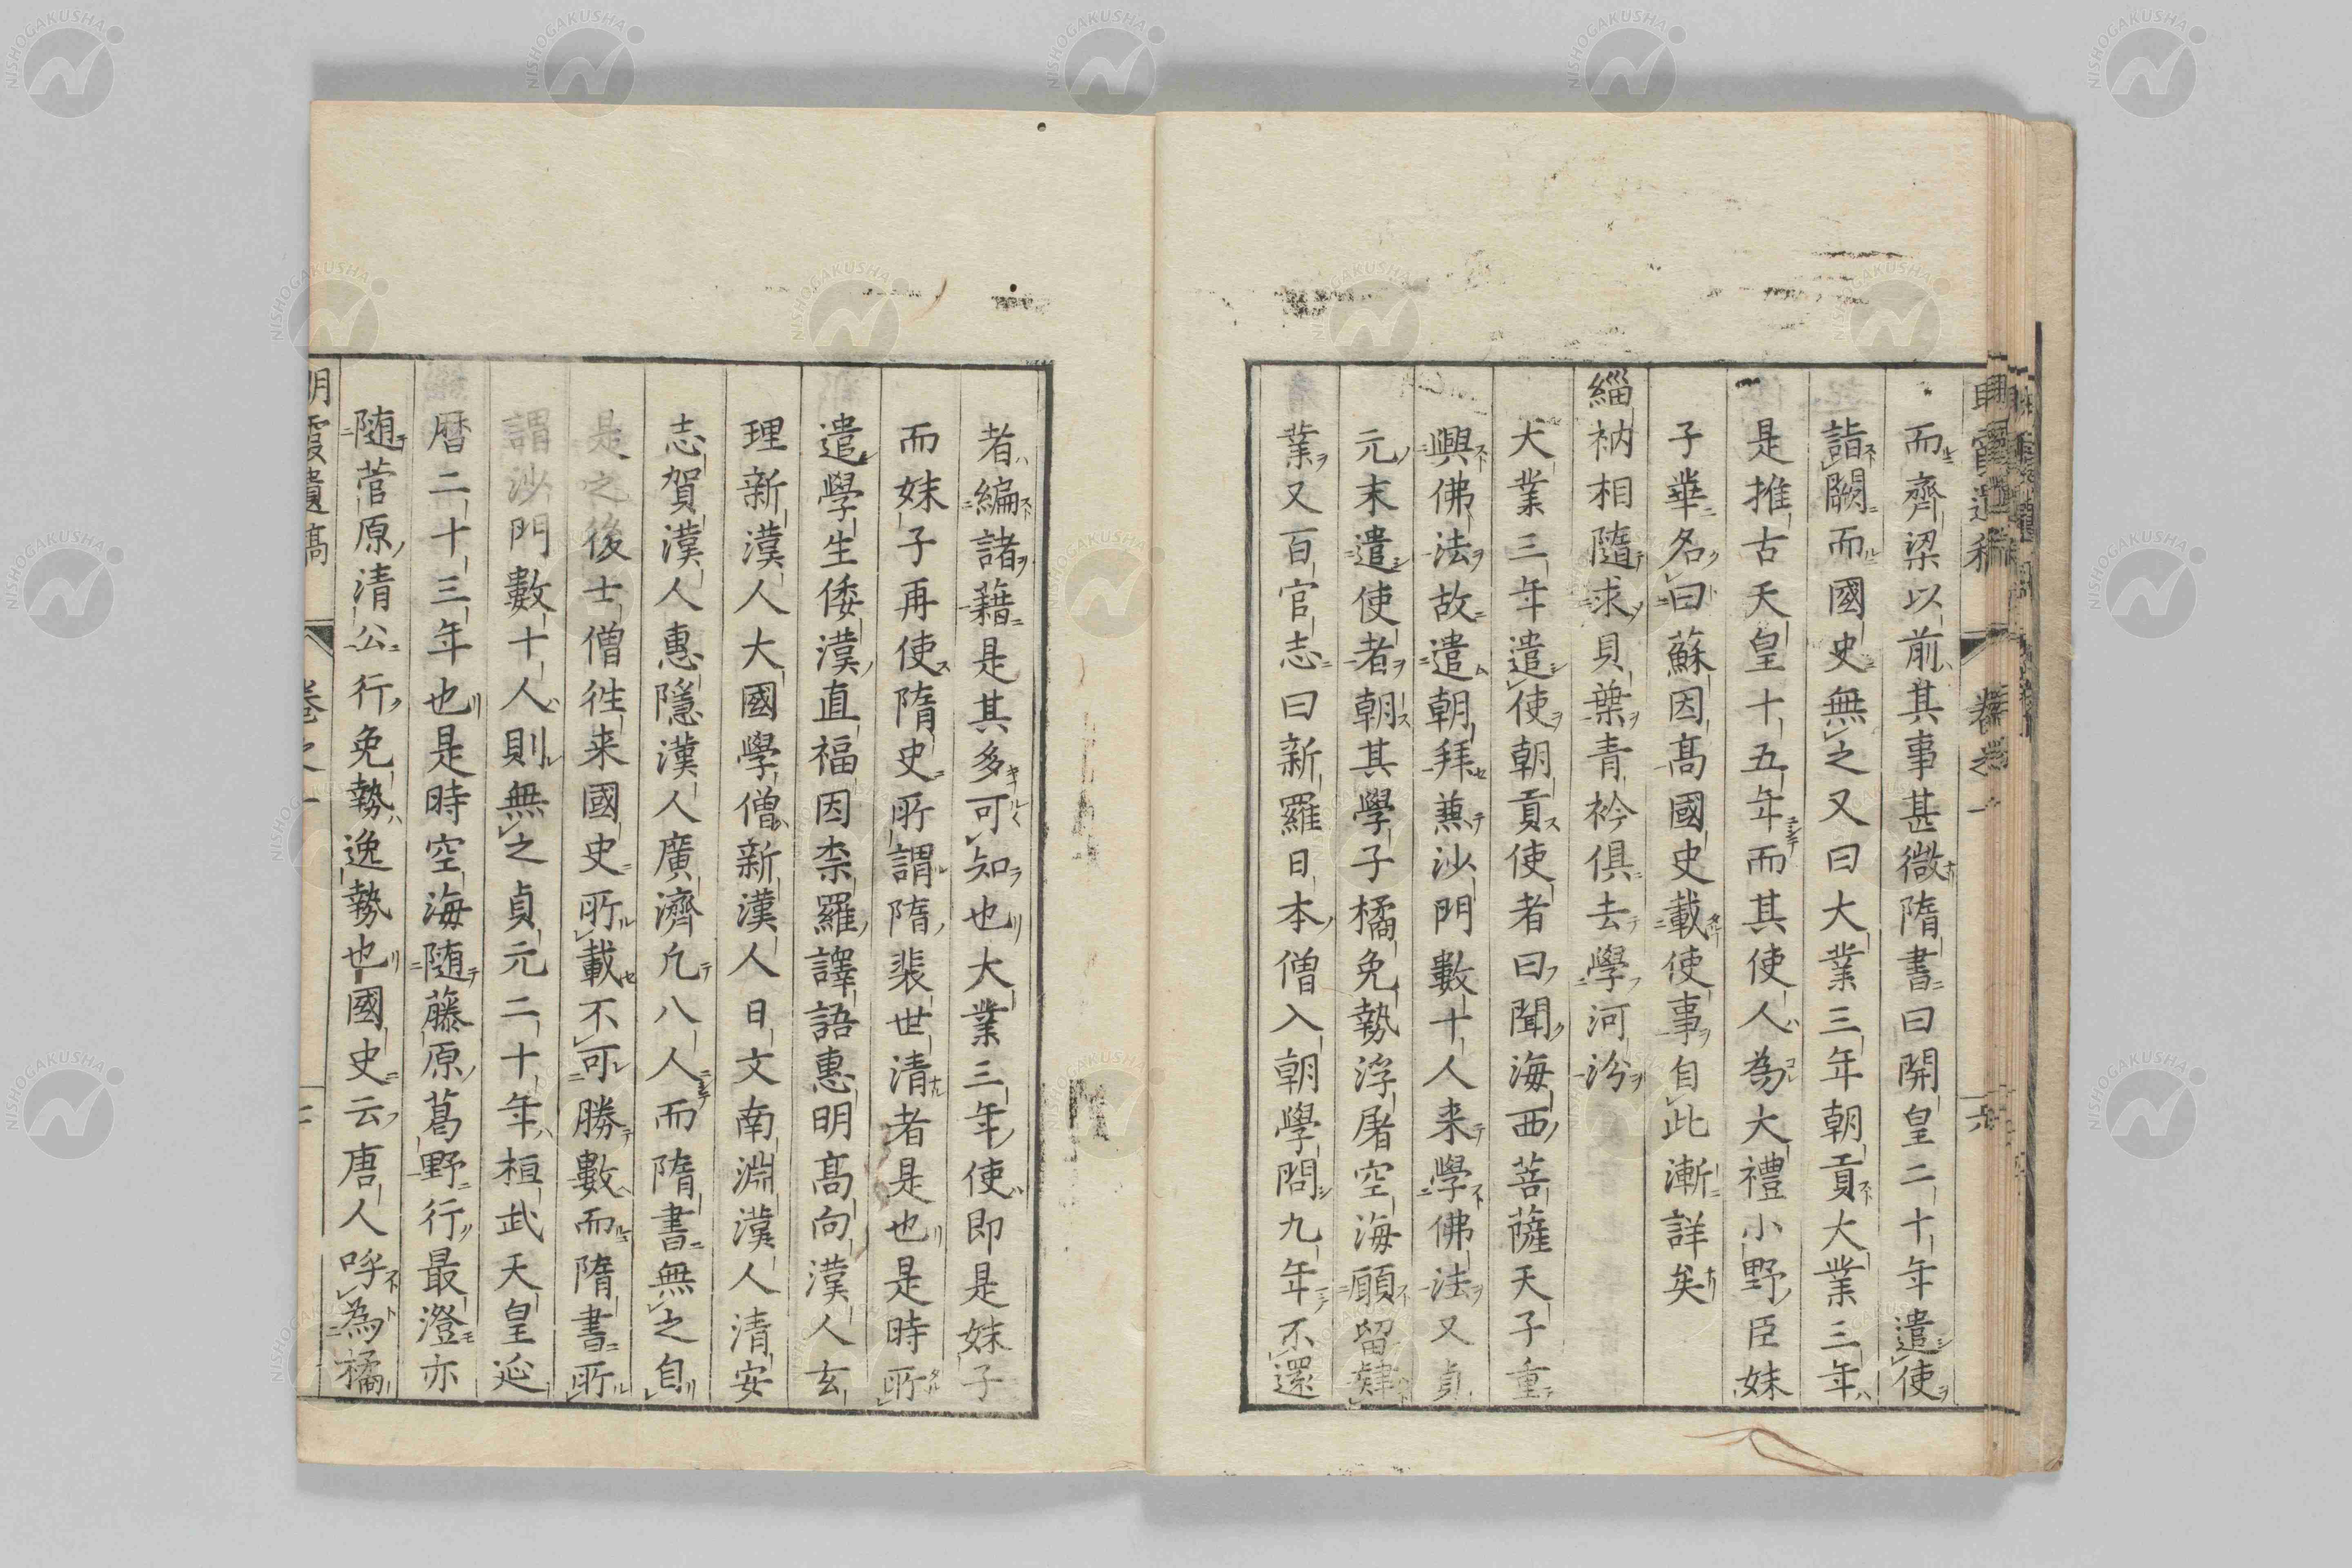 而齊梁以前其事甚微隋書曰開皇二十年遣使
詣闕而國史無之又曰大業三年朝貢大業三年
是推古天皇十五年而其使人為大禮小野臣妹
子華名曰蘇因高國史載使事自此漸詳矣
緇衲相隨求貝葉青衿俱去學河汾
大業三年遣使朝貢使者曰聞海西菩薩天子重
興佛法故遣朝拜兼沙門數十人来學佛法又貞
元末遣使者朝其學子橘免勢浮屠空海願留肄
業又百官志曰新羅日本僧入朝學問九年不還
者編諸籍是其多可知也大業三年使即是妹子
而妹子再使隋史所謂隋裴世清者是也是時所
遣學生倭漢直福因柰羅譯語惠明高向漢人玄
理新漢人大國學僧新漢人日文南淵漢人清安
志賀漢人惠隱漢人廣濟凡八人而隋書無之自
是之後士僧徃来國史所載不可勝數而隋書所
謂沙門數十人則無之貞元二十年桓武天皇延
暦二十三年也是時空海随藤原葛野行最澄亦
随菅原清公行免勢逸勢也國史云唐人呼為橘
朝霞遺稿 卷之一
NISHOGAKUSHA